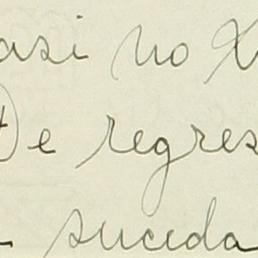 asi no
e regres
suceda